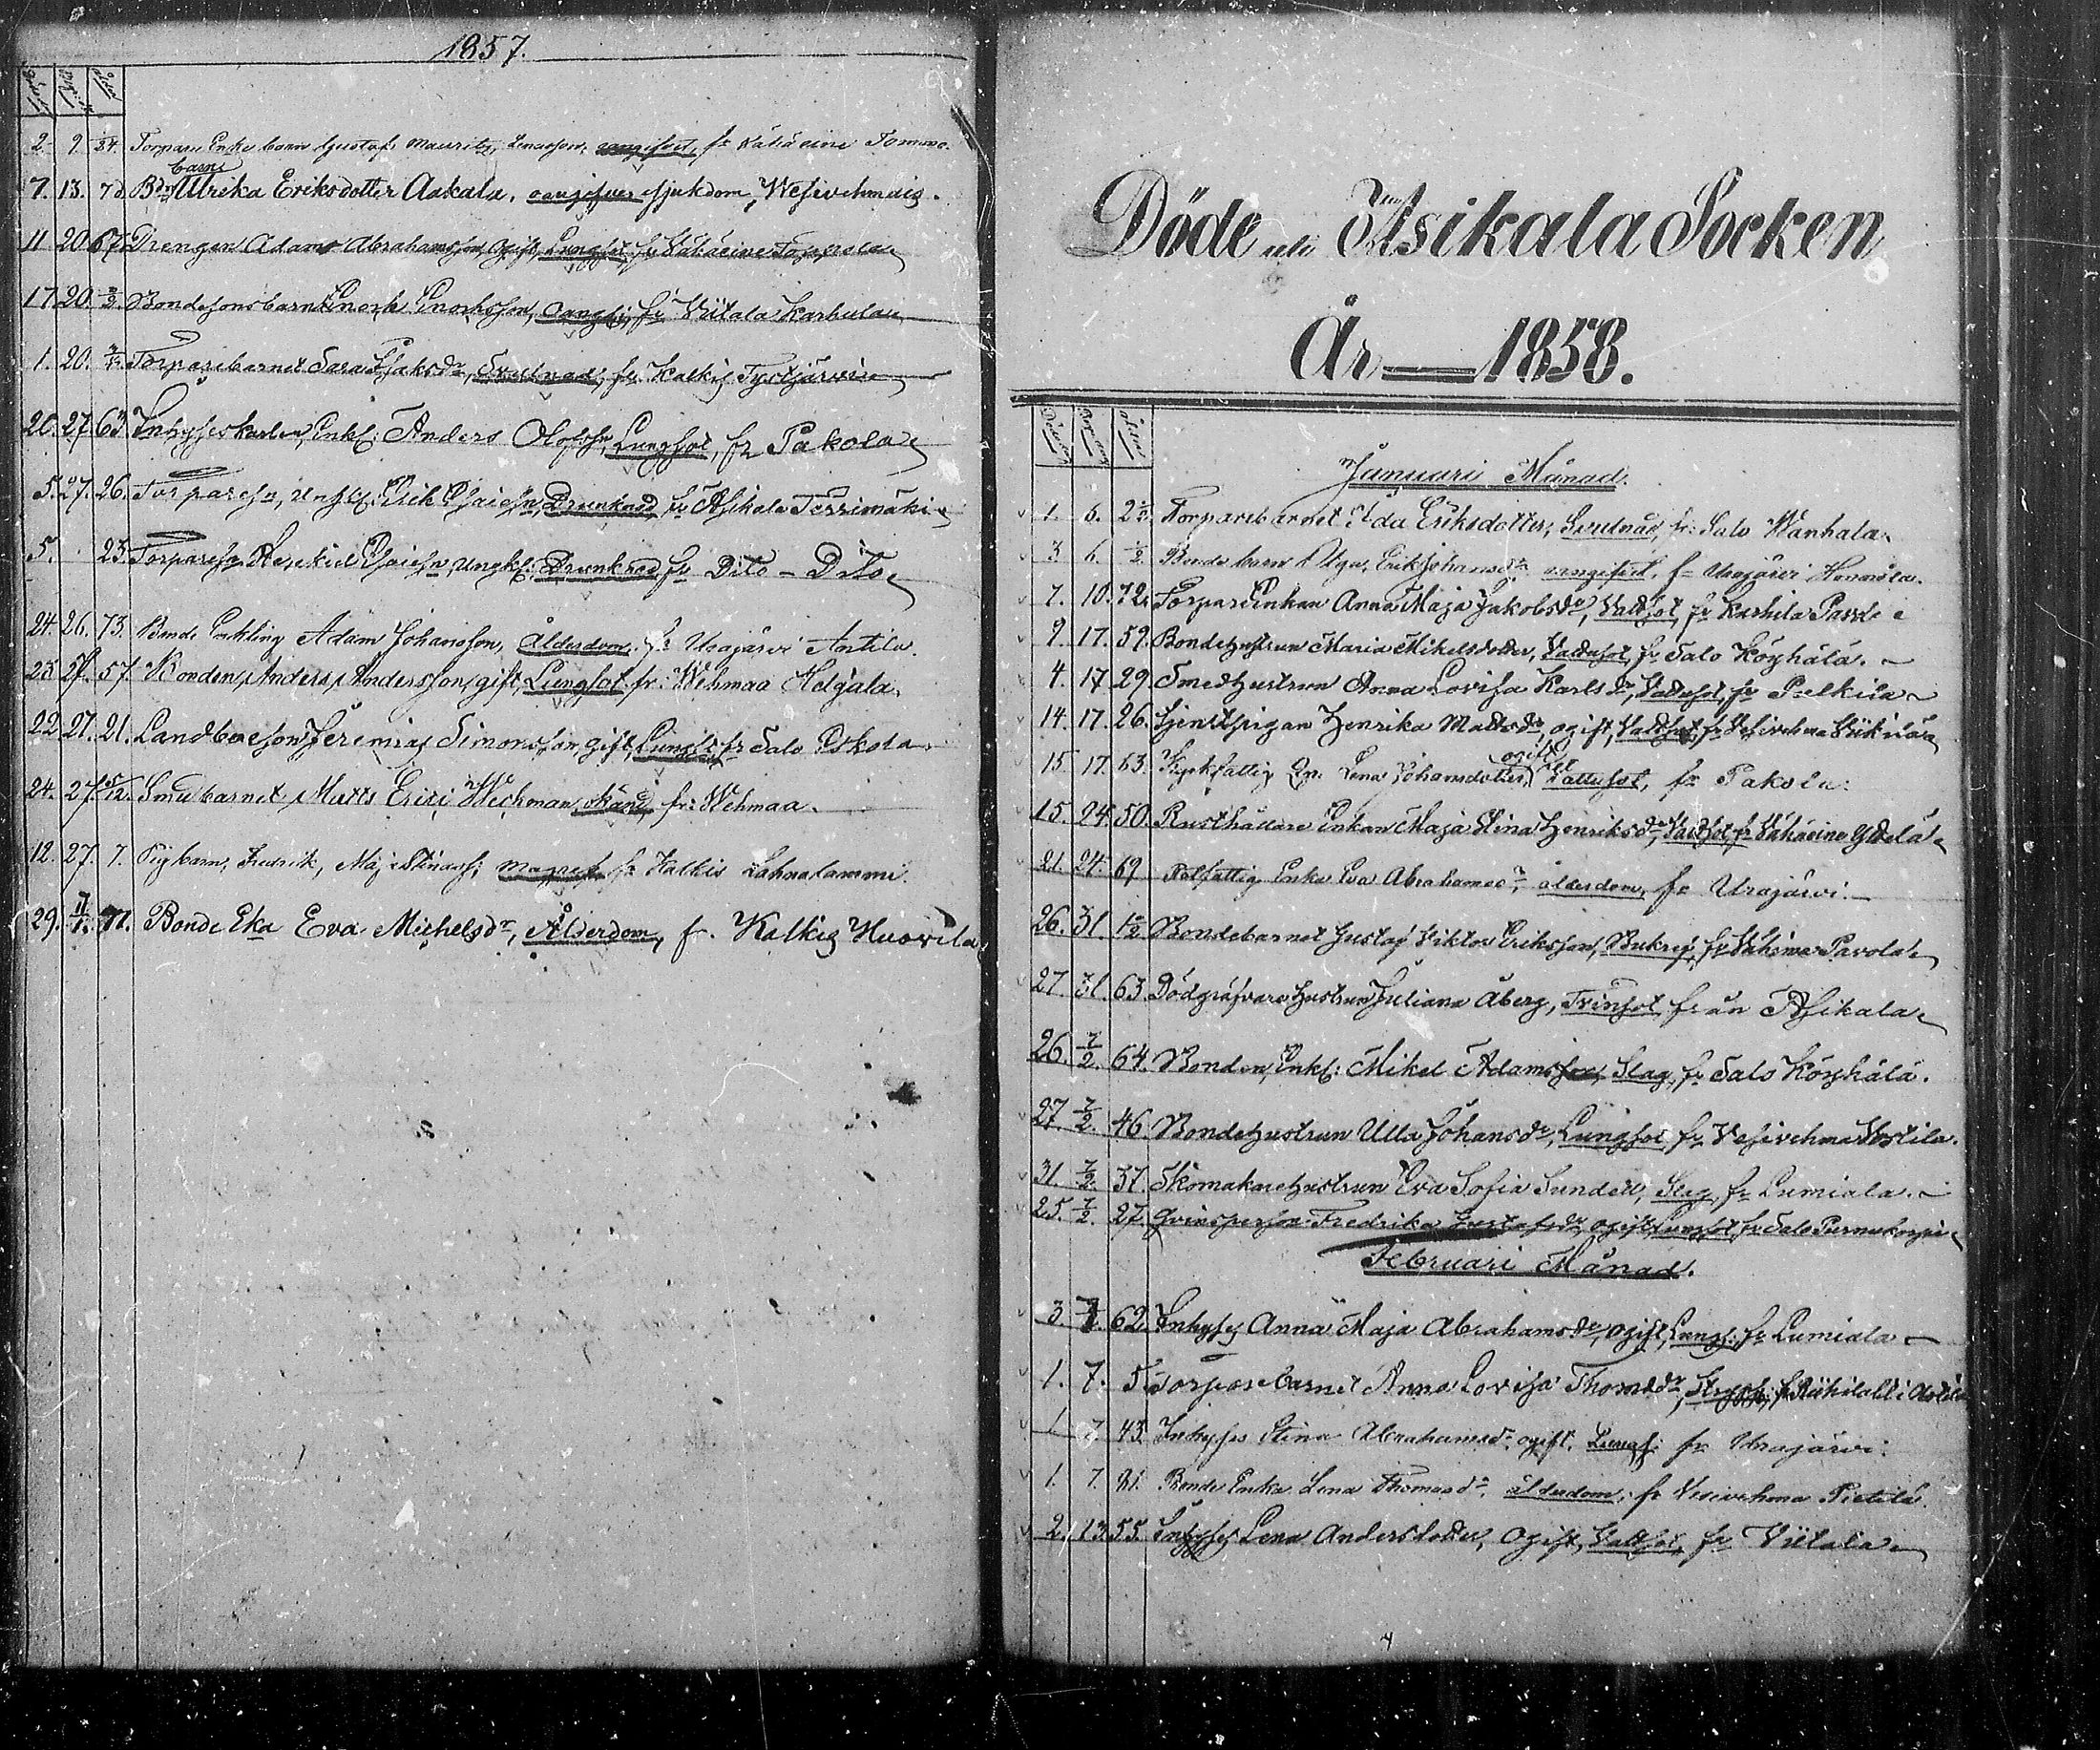 1857.
2. 9 Torpare Enke barn Gustaf Mauritz, oangifvet, fr
barn
7. 13. 7 d Bde Ulrika Eriksdotter Aakala, oangifven sjukdom, Wesivehmais.
11 20 67. Drengen Adam Abrahamsson, ogift, Lungsot, fr Vähäeine
17. 20. Bondesonsbarnet Enoch Enochsson, oangif:, fr Viitala Karhulan
1. 20. Torparebarnet Sara Isaksdr, Svulnad, fr Kalkis Tystjärvi
20. 27. 63. Inhyseskarlen, Enkl: Anders Olofsson, Lungsot, fr Pakola
5. 27. 26. Torparesn, Ungk: Erik Esaiesn, Drunknad, fr Asikala Terrimäki
5. 23. Torparesn Hesekiel Esaiesn, ungk: Drunknad, fr Dito - Dito
24. 26. 73. Bonde Enkling Adam Johansson, Ålderdom, fr Urajärvi Antila.
23. 27. 57. Bonden, Anders Andersson, gift, Lungsot, fr: Wehmaa Heigala.
22. 27. 21. Landboeson Jeremias Simonsson, gift, Lungs: fr Salo Eskola.
24. 27. 5/12. Smedbarnet Matts Erici Weckman, okänd, fr: Wehmaa.
12. 27. 7. Pigbarn, Fredrik, Maja Stinas s; fr Kalkis Lahnalammi.
29. 11/1. 77. Bonde Eka Eva Michelsdr, Ålderdom, fr. Kalkis Huovila
Döde uti Asikala Socken
År — 1858.
Januari Månad.
1. 6. 2 Torparebarnet Ida Eriksdotter, Svulnad, fr: Salo Wanhala.
3. 6. 1/2 Bonde barn Olga, Erik Johansdr oangifvet, fr Urajärvi
7. 10. 72. TorpareEnkan Anna Maja Jakobsdr, Vattsot, fr Karhila
9. 17. 59. Bondehustrun Maria Mikelsdotter, Vattusot, fr Salo Köyhälä.
4. 17. 29. Smedhustrun Anna Lovisa Karlsdr, Vattusot, fr Pulkila
14. 17. 26. Tjenstpigan Henrika Mattsdr, ogift, Vattsot, fr Vesivehma
ogift
15. 17. 63. Kyrkfattig Qn. Lena Johansdotter, Vattusot, fr Pakola:
15. 24. 50. Rusthållare Enkan Maja Stina Henriksdr, Vattsot, fr Vähäeine
21. 24. 69 Rotfattig Enka Eva Abrahamsdr, ålderdom, fr Urajärvi.
26. 31. 1/2. Bondebarnet Gustaf Viktor Eriksson, Bukref, fr Vähimaa Pavola
27. 31. 63. Dödgräfvare hustrun Juliana Åberg, Tvinsot från Asikala
26. 7/2 64. Bonden, Enkl: Mikel Adamsson, Slag, fr Salo Köyhälä.
27 7/2. 46. Bondehustrun Ulla Johansdr, Lungsot, fr Vesivehma
31. 7/2. 37. Skomakarehustrun Eva Sofia Sundell, Slag, fr Lumiala.
25. 7/2. 27. Qvinsperson Fredrika Gustafsdr, ogift, Lungsot, fr Salo Purnukorpi
Februari Månad.
3. 7. 62. Inhyses Anna Maja Abrahamsdr, ogift, Lungs: fr Lumiala
1. 7. 5. Torparebarnet Anna Lovisa Thomsdr,
1. 7. 43. Inhyses Stina Abrahamsdr, ogift, Lungs: fr Urajärvi:
1. 7. 81. Bonde Enka Lena Thomasdr, ålderdom, fr Vesivehma Pietilä.
2. 13. 55. Inhyses Lena Andersdotter, ogift, Vattsot, fr Viitala